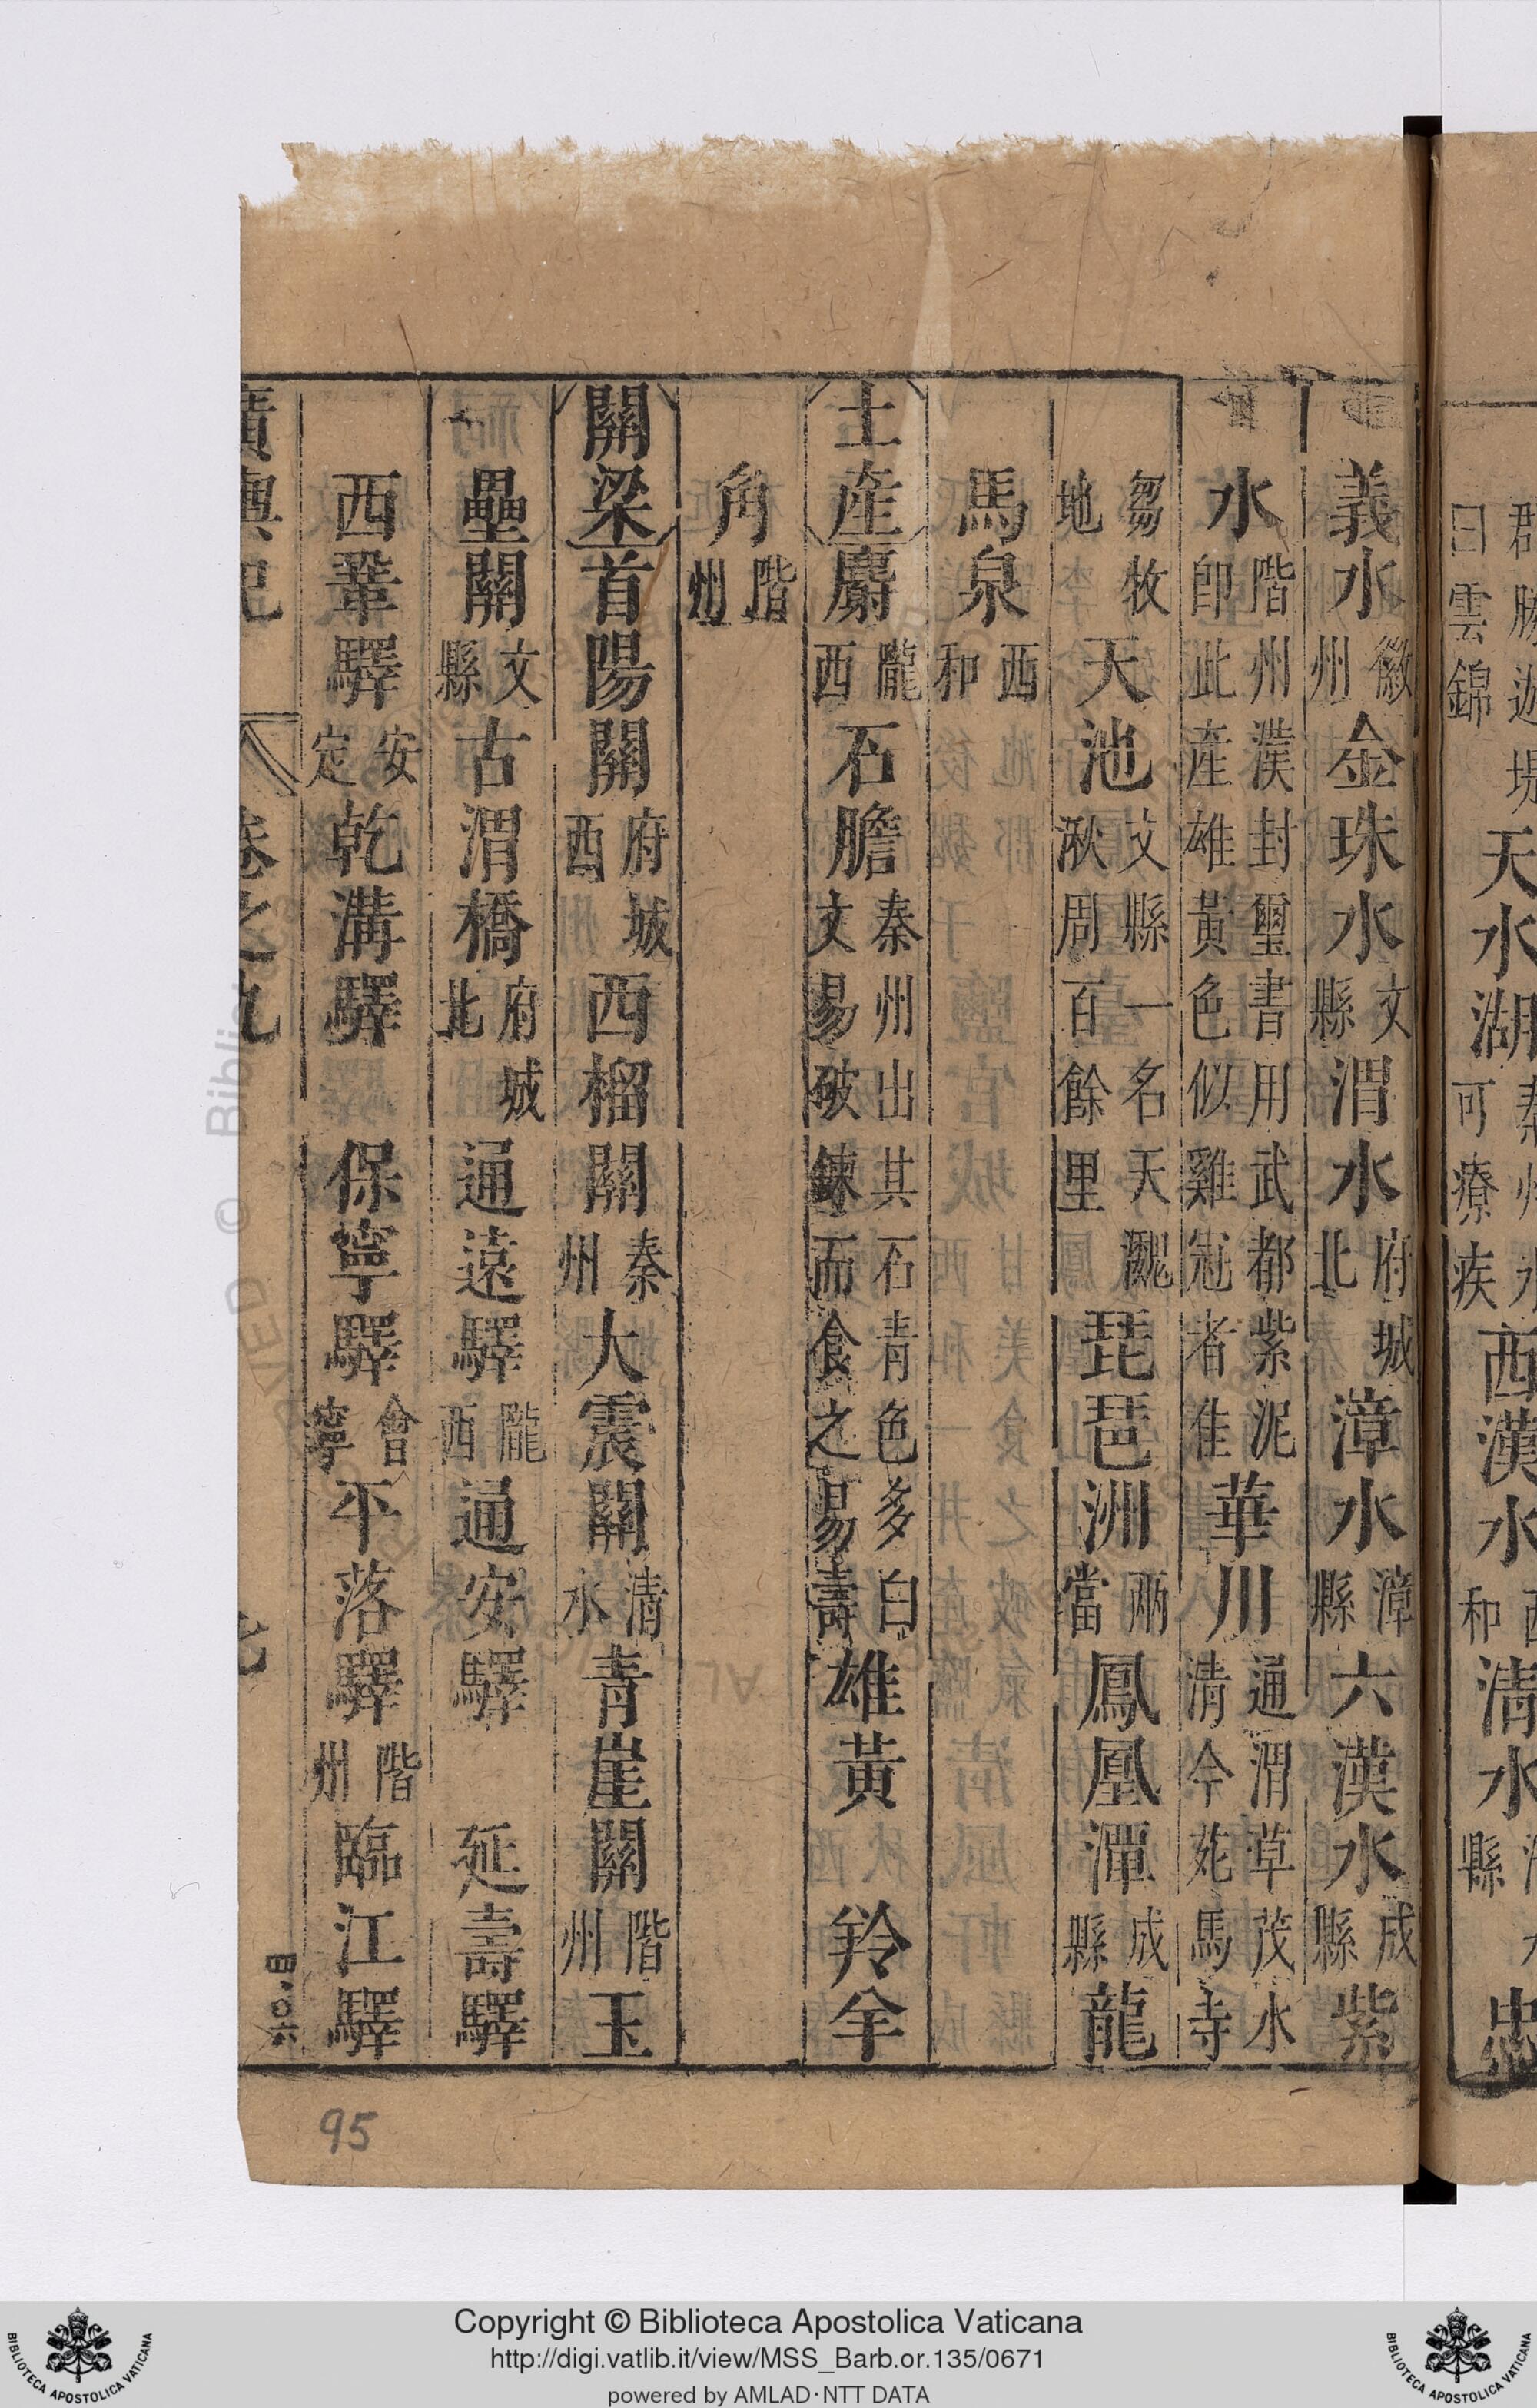 天水湖 可療疾 西漢水 清水 忠
曰雲錦
義水徽州金珠水文縣渭水府城北漳水漳縣六漢水成縣紫
水階州漢封璽書用武都紫泥即此產雄黃色似雞冠者佳華川通渭草茂水清今苑馬寺
芻牧地天池文縣一名天䰟湫周百餘里琵琶洲兩當鳳凰潭成縣龍
馬泉西和
土產麝隴西石膽秦州出其石青色多白文易破鍊而食之易壽雄黃 羚羊
角階州
關梁首陽關府城西西榴關秦州大震關清水青崖關階州玉
壘關文縣古渭橋府城北通遠驛隴西通安驛 延壽驛
西鞏驛安定乾溝驛 保寧驛會寧平落驛階州臨江驛
廣輿記 卷之九
95
Copyright © Biblioteca Apostolica Vaticana
http://digi.vatlib.it/view/MSS_Barb.or.135/0671
powered by AMLAD·NTT DATA
BIBLIOTECA APOSTOLICA VATICANA
BIBLIOTECA APOSTOLICA VATICANA